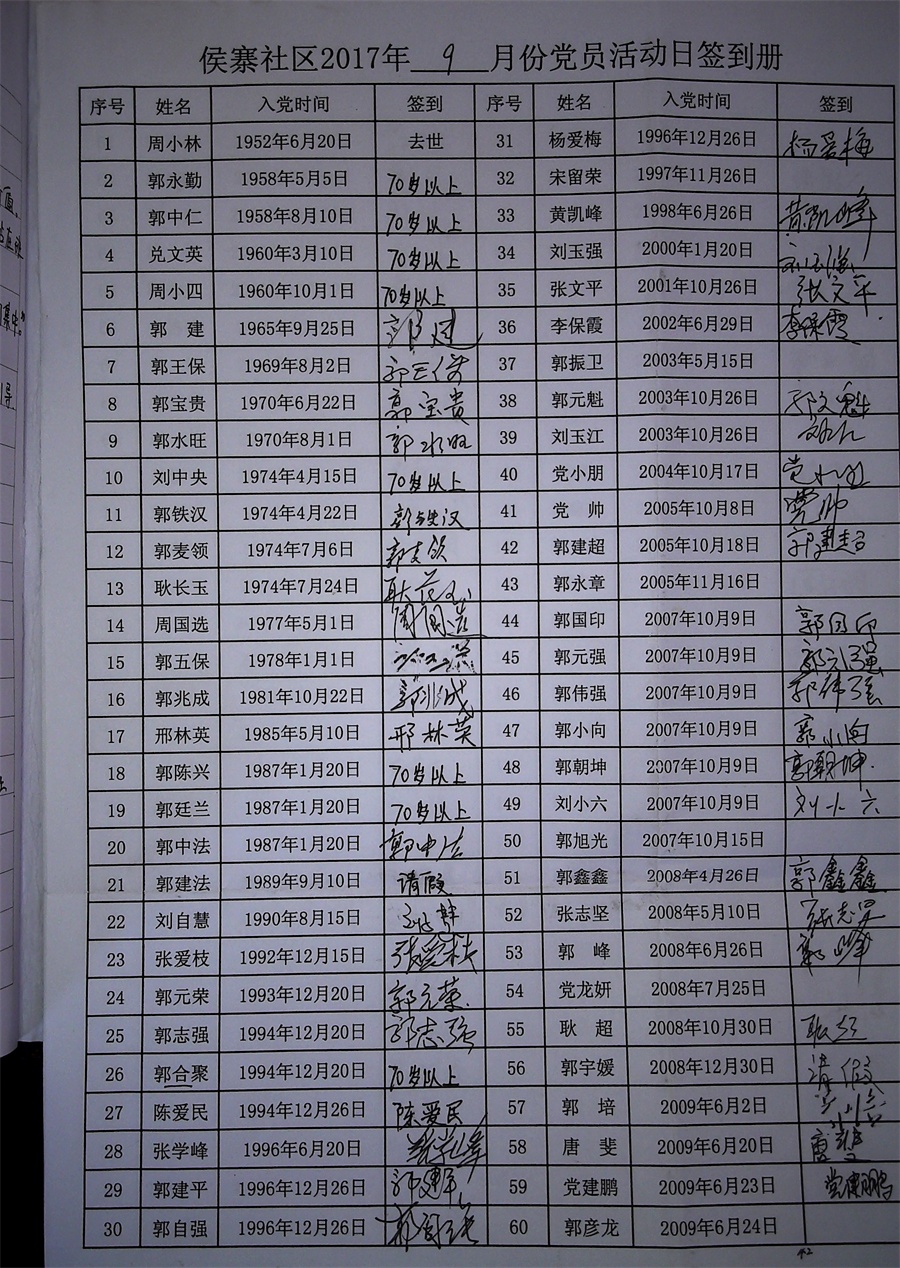 侯寨社区2017年 9 月份党员活动日签到册
序号 姓名 入党时间 签到 序号 姓名 入党时间 签到
1 周小林 1952年6月20日 去世 31 杨爱梅 1996年12月26日 杨爱梅
2 郭永勤 1958年5月5日 70岁以上 32 宋留荣 1997年11月26日
3 郭中仁 1958年8月10日 70岁以上 33 黄凯峰 1998年6月26日 黄凯峰
4 兑文英 1960年3月10日 70岁以上 34 刘玉强 2000年1月20日 刘玉强
5 周小四 1960年10月1日 70岁以上 35 张文平 2001年10月26日 张文平
6 郭 建 1965年9月25日 郭建 36 李保霞 2002年6月29日 李保霞
7 郭王保 1969年8月2日 郭王保 37 郭振卫 2003年5月15日
8 郭宝贵 1970年6月22日 郭宝贵 38 郭元魁 2003年10月26日 郭元魁
9 郭水旺 1970年8月1日 郭水旺 39 刘玉江 2003年10月26日
10 刘中央 1974年4月15日 70岁以上 40 党小朋 2004年10月17日 党小朋
11 郭铁汉 1974年4月22日 郭铁汉 41 党 帅 2005年10月8日 党帅
12 郭麦领 1974年7月6日 郭麦领 42 郭建超 2005年10月18日 郭建超
13 耿长玉 1974年7月24日 43 郭永章 2005年11月16日
14 周国选 1977年5月1日 周国选 44 郭国印 2007年10月9日 郭国印
15 郭五保 1978年1月1日 45 郭元强 2007年10月9日 郭元强
16 郭兆成 1981年10月22日 郭兆成 46 郭伟强 2007年10月9日 郭伟强
17 邢林英 1985年5月10日 邢林英 47 郭小向 2007年10月9日 郭小向
18 郭陈兴 1987年1月20日 70岁以上 48 郭朝坤 2007年10月9日 郭朝坤
19 郭廷兰 1987年1月20日 70岁以上 49 刘小六 2007年10月9日 刘小六
20 郭中法 1987年1月20日 郭中法 50 郭旭光 2007年10月15日
21 郭建法 1989年9月10日 请假 51 郭鑫鑫 2008年4月26日 郭鑫鑫
22 刘自慧 1990年8月15日 52 张志坚 2008年5月10日 张志坚
23 张爱枝 1992年12月15日 张爱枝 53 郭 峰 2008年6月26日 郭峰
24 郭元荣 1993年12月20日 郭元荣 54 党龙妍 2008年7月25日
25 郭志强 1994年12月20日 郭志强 55 耿 超 2008年10月30日 耿超
26 郭合聚 1994年12月20日 70岁以上 56 郭宇媛 2008年12月30日 请假
27 陈爱民 1994年12月26日 陈爱民 57 郭 培 2009年6月2日
28 张学峰 1996年6月20日 张学峰 58 唐 斐 2009年6月20日 唐斐
29 郭建平 1996年12月26日 郭建平 59 党建鹏 2009年6月23日 党建鹏
30 郭自强 1996年12月26日 郭自强 60 郭彦龙 2009年6月24日
42